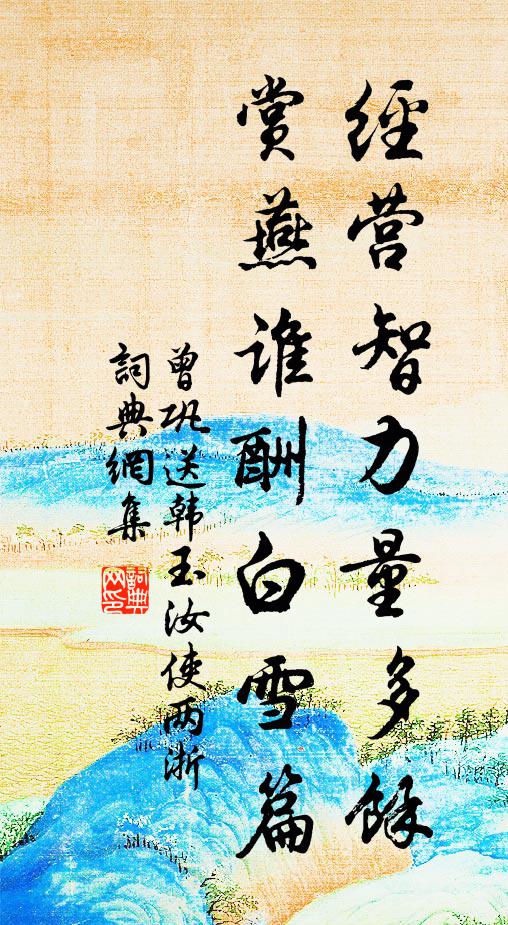 經营智力量多餘
賞燕谁酬白雪篇
曾巩送韩玉汝使两浙
詞典網集
詞典
网印